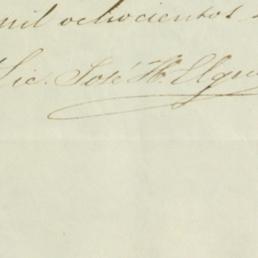 mil ochocientos
Lic. José H. Elgu